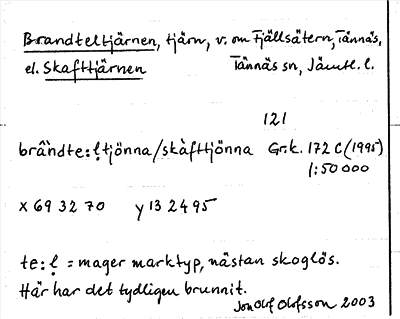 Brandteltjärnen, tjärn, v. om Fjällsätern, Tännäs,
el. Skafttjärnen Tännäs sn, Jämtl. l.
121
brånte:ḷtjönna/skàfttjönna Gr.k. 172 C (1995)
1:50 000
x 69 32 70 y 13 24 95
te:ḷ = mager marktyp, nästan skoglös.
Här har det tydligen brunnit.
Jon Olof Olofsson 2003